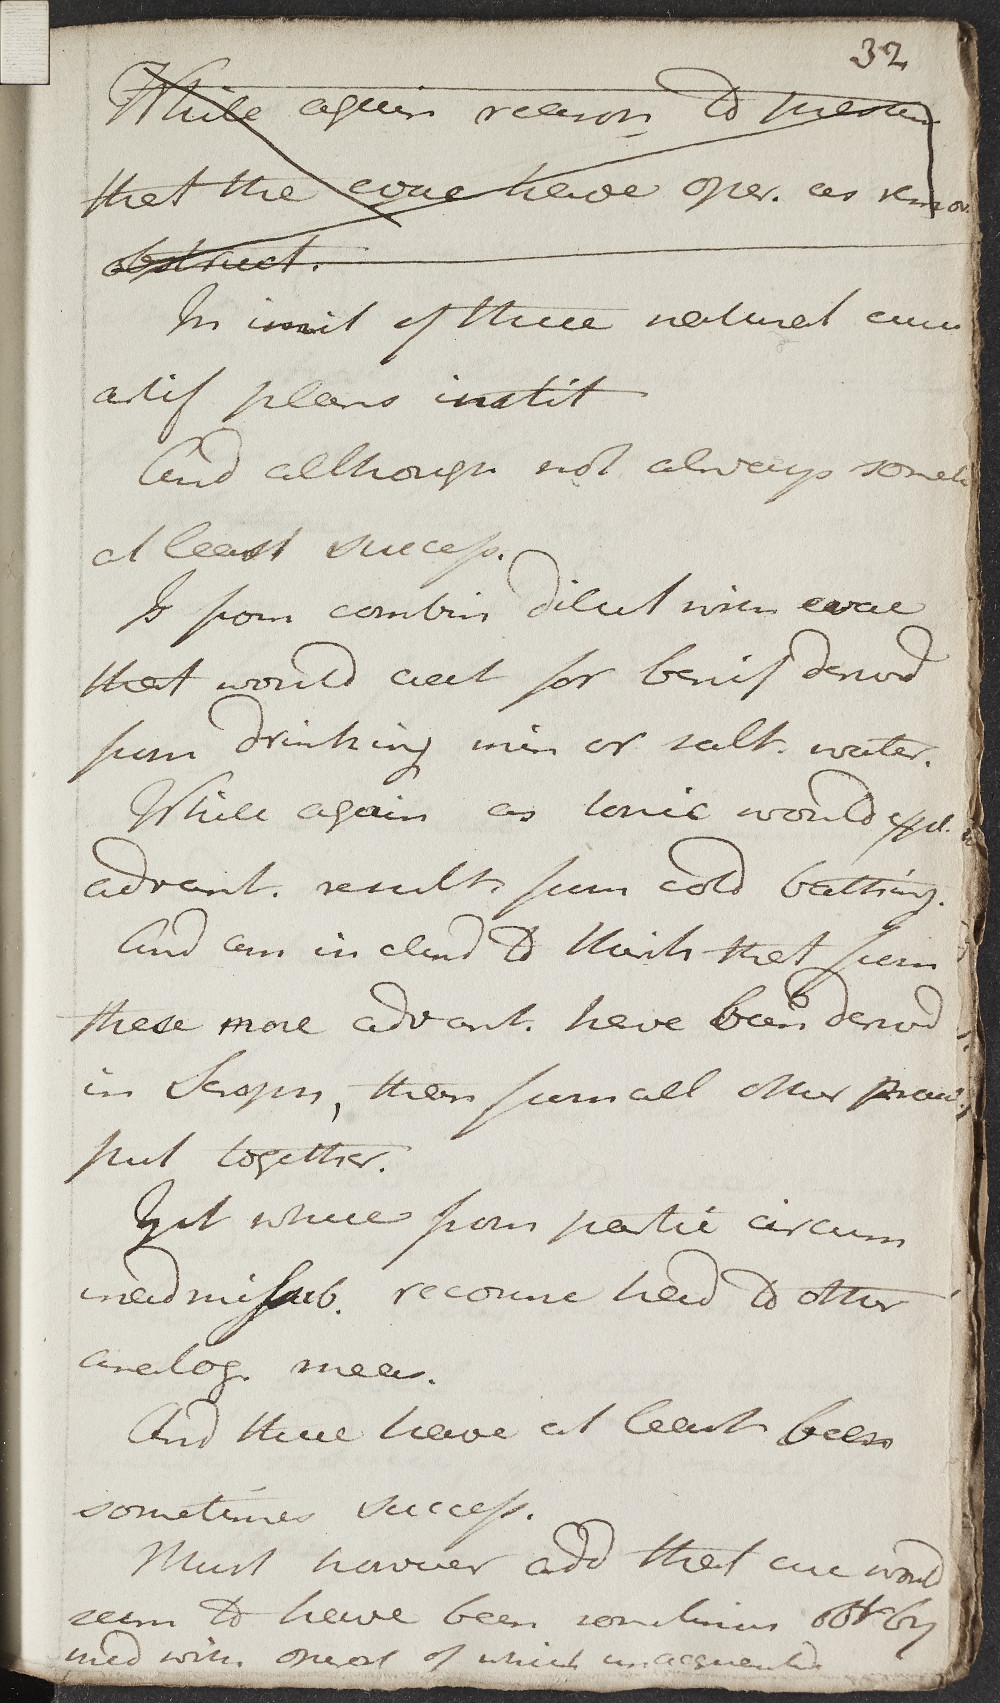 32
While again reason to presum
that the evac have oper. as remov
obstruct.
In imit of these natural cures
artif plans instit
And although not always someti
at least success.
Is from combin dilut with evac
that would acct for benif derivd
from drinking min or salt. water.
While again as tonic would expl.
advant. result. from cold bathing.
And am inclind to think that from
these more advant. have been derivd
in Scroph, than from all other
put together.
Yet where from partic circum
inadmissib. recourse head to other
analog. meas.
And these have at least been
sometimes success.
Must however add that cure would
seem to have been sometimes obt by
med with operat of which unacquainted